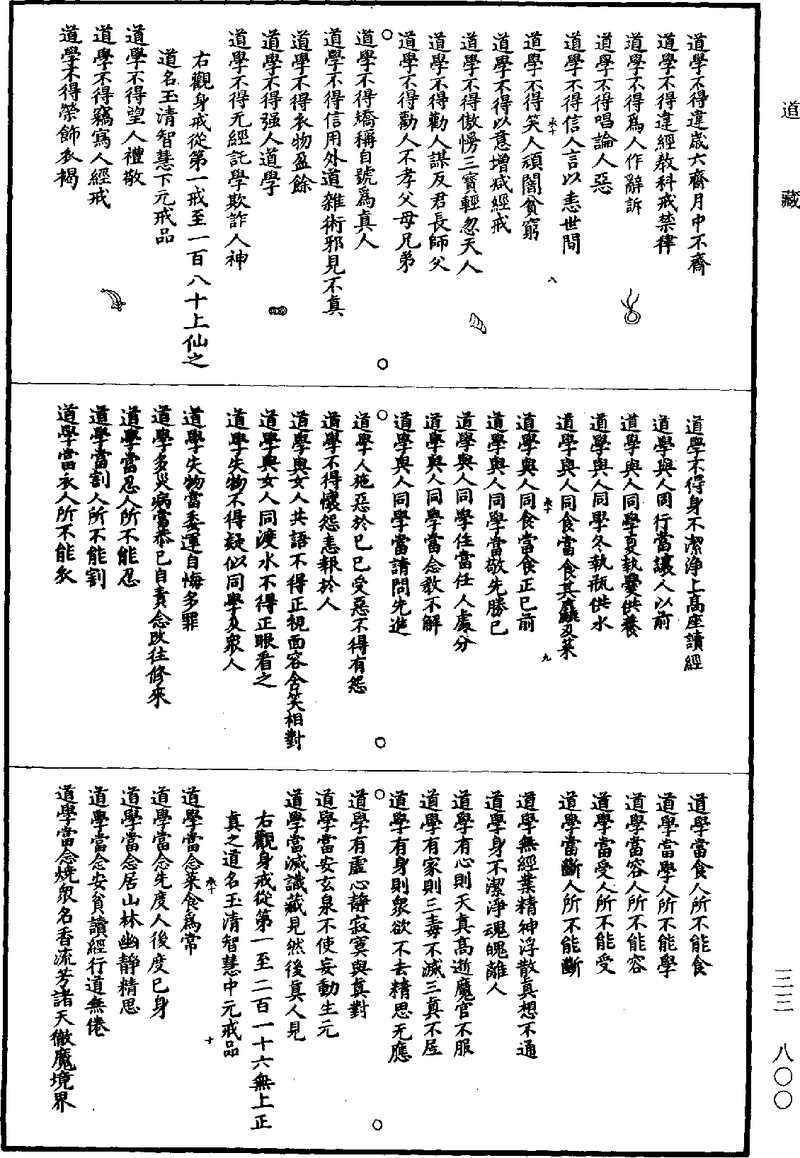 道學不得違歲六齋月中不齋
道學不得違經教科戒禁律
道學不得爲人作辭訴
道學不得唱論人惡
道學不得信人言以恚世間
道學不得笑人頑闇貧窮
道學不得以意增減經戒
道學不得傲慢三寶輕忽天人
道學不得勸人謀反君長師父
道學不得勸人不孝父母兄弟
道學不得矯稱自號爲真人
道學不得信用外道雜術邪見不真
道學不得衣物盈餘
道學不得强人道學
道學不得无經託學欺詐人神
右觀身戒從第一戒至一百八十上仙之
道名玉清智慧下元戒品
道學不得望人禮敬
道學不得竊寫人經戒
道學不得榮飾衣褐
道學不得身不潔淨上高座讀經
道學與人同行當讓人以前
道學與人同學夏執爨供養
道學與人同學冬執瓶供水
道學與人同食當食其麤及菜
道學與人同食當食正已前
道學與人同學當敬先勝已
道學與人同學住當任人處分
道學與人同學當念教不解
道學與人同學當請問先進
道學人施惡於已已受惡不得有怨
道學不得懷怨恚報於人
道學與女人共語不得正視面容含笑相對
道學與女人同渡水不得正眼看之
道學失物不得疑似同學及衆人
道學失物當委運自悔多罪
道學多災病當恭已自責念改往修來
道學當忍人所不能忍
道學當割人所不能割
道學當衣人所不能衣
道學當食人所不能食
道學當學人所不能學
道學當容人所不能容
道學當受人所不能受
道學當斷人所不能斷
道學無經業精神浮散真想不通
道學身不潔淨魂魄離人
道學有心則天真高逝魔官不服
道學有家則三毒不滅三真不居
道學有身則衆欲不去精思无應
道學有虛心靜寂寞與真對
道學當安玄泉不使妄動生元
道學當滅識藏見然後真人見
右觀身戒從第一至二百一十六無上正
真之道名玉清智慧中元戒品
道學當念菜食爲常
道學當念先度人後度已身
道學當念居山林幽靜精思
道學當念安貧讀經行道無倦
道學當念燒衆名香流芳諸天徹魔境界
道藏
三三 八〇〇
八
九
十